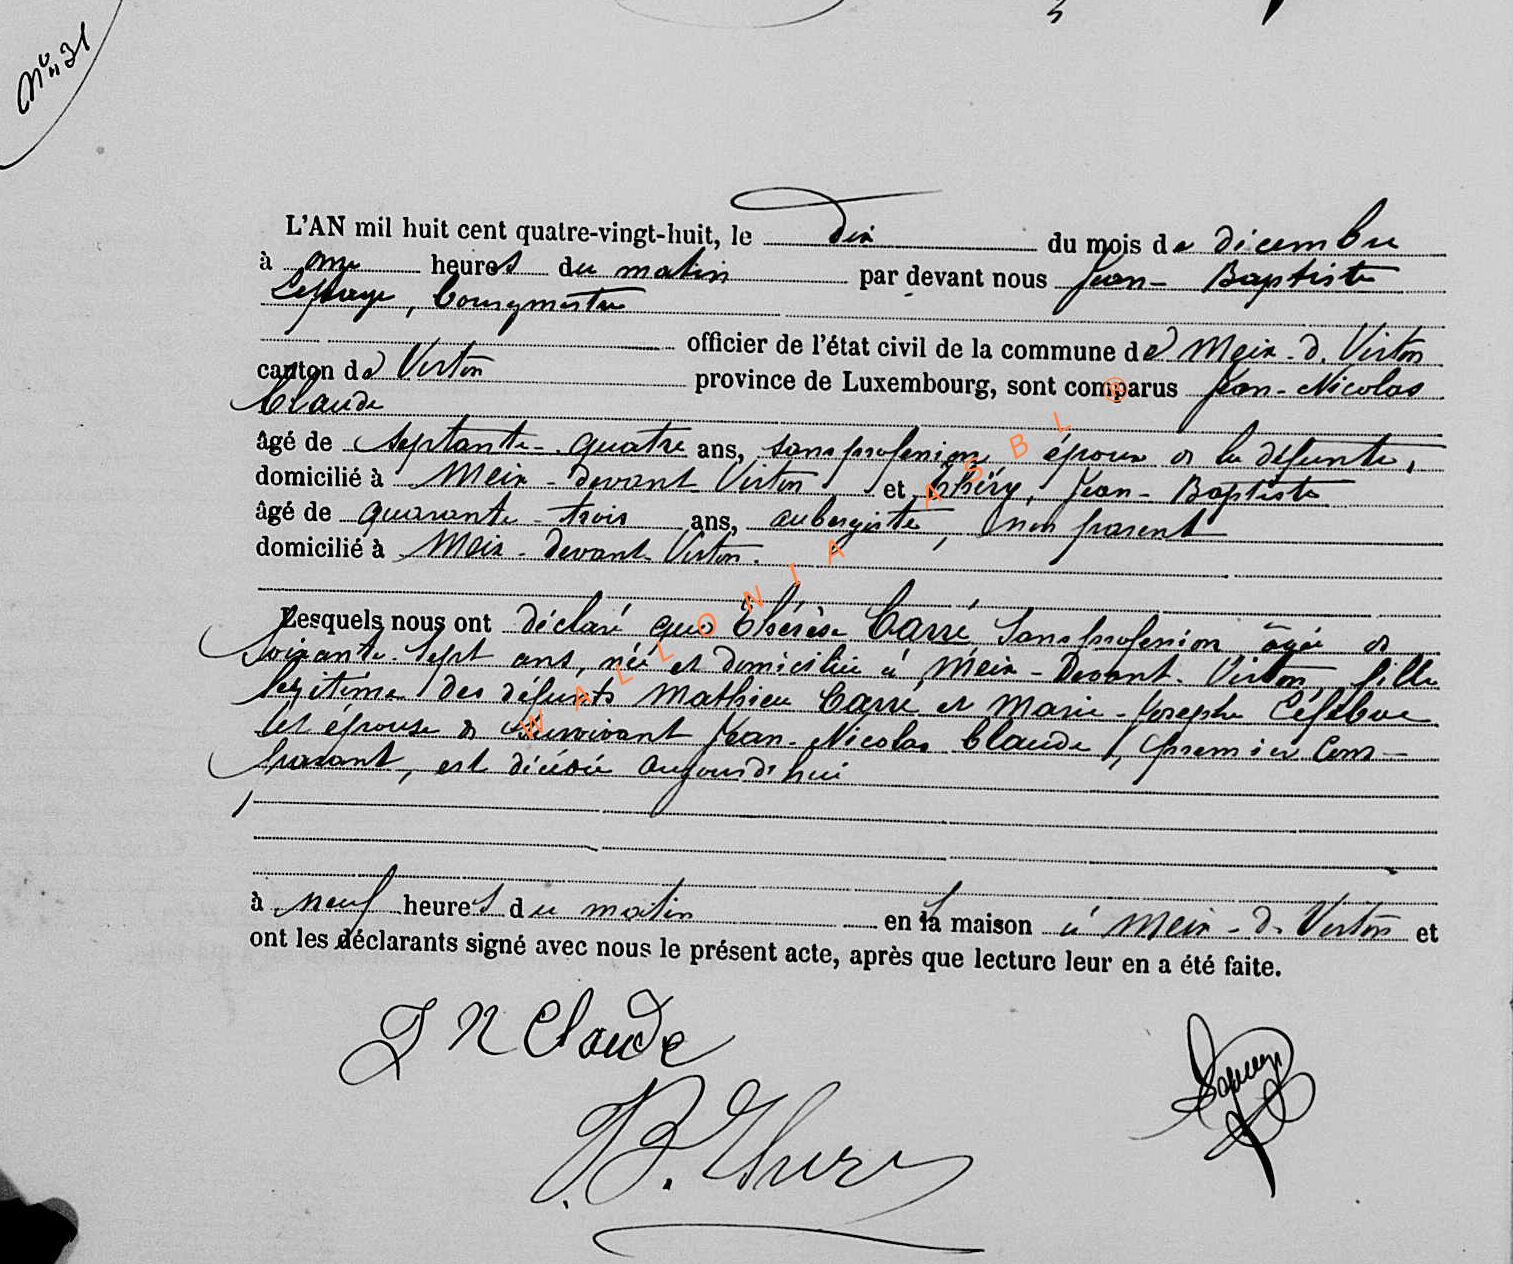 N° 31
L'AN mil huit cent quatre-vingt-huit, le dix du mois de décembre
à onze heures du matin par devant nous Jean-Baptiste
Lepage, bourgmestre
officier de l'état civil de la commune de Meix-d. Virton
canton de Virton province de Luxembourg, sont comparus Jean-Nicolas
Claude
âgé de septante-quatre ans, sans profession, époux de la défunte,
domicilié à Meix-devant-Virton et Théry, Jean-Baptiste
âgé de quarante-trois ans, aubergiste, non parent
domicilié à Meix-devant-Virton.
Lesquels nous ont déclaré que Thérèse Carré sans profession âgée de
soixante-sept ans, née et domiciliée à Meix-Devant-Virton, fille
légitime des défunts Mathieu Carré et Marie-Josephe Léfébvre
et épouse de survivant Jean-Nicolas Claude, premier com-
parant, est décédée aujourd'hui
à neuf heures du matin en sa maison à Meix-d-Virton et
ont les déclarants signé avec nous le présent acte, après que lecture leur en a été faite.
J N Claude
J.B. Thery
WALLONIA ASBL ®